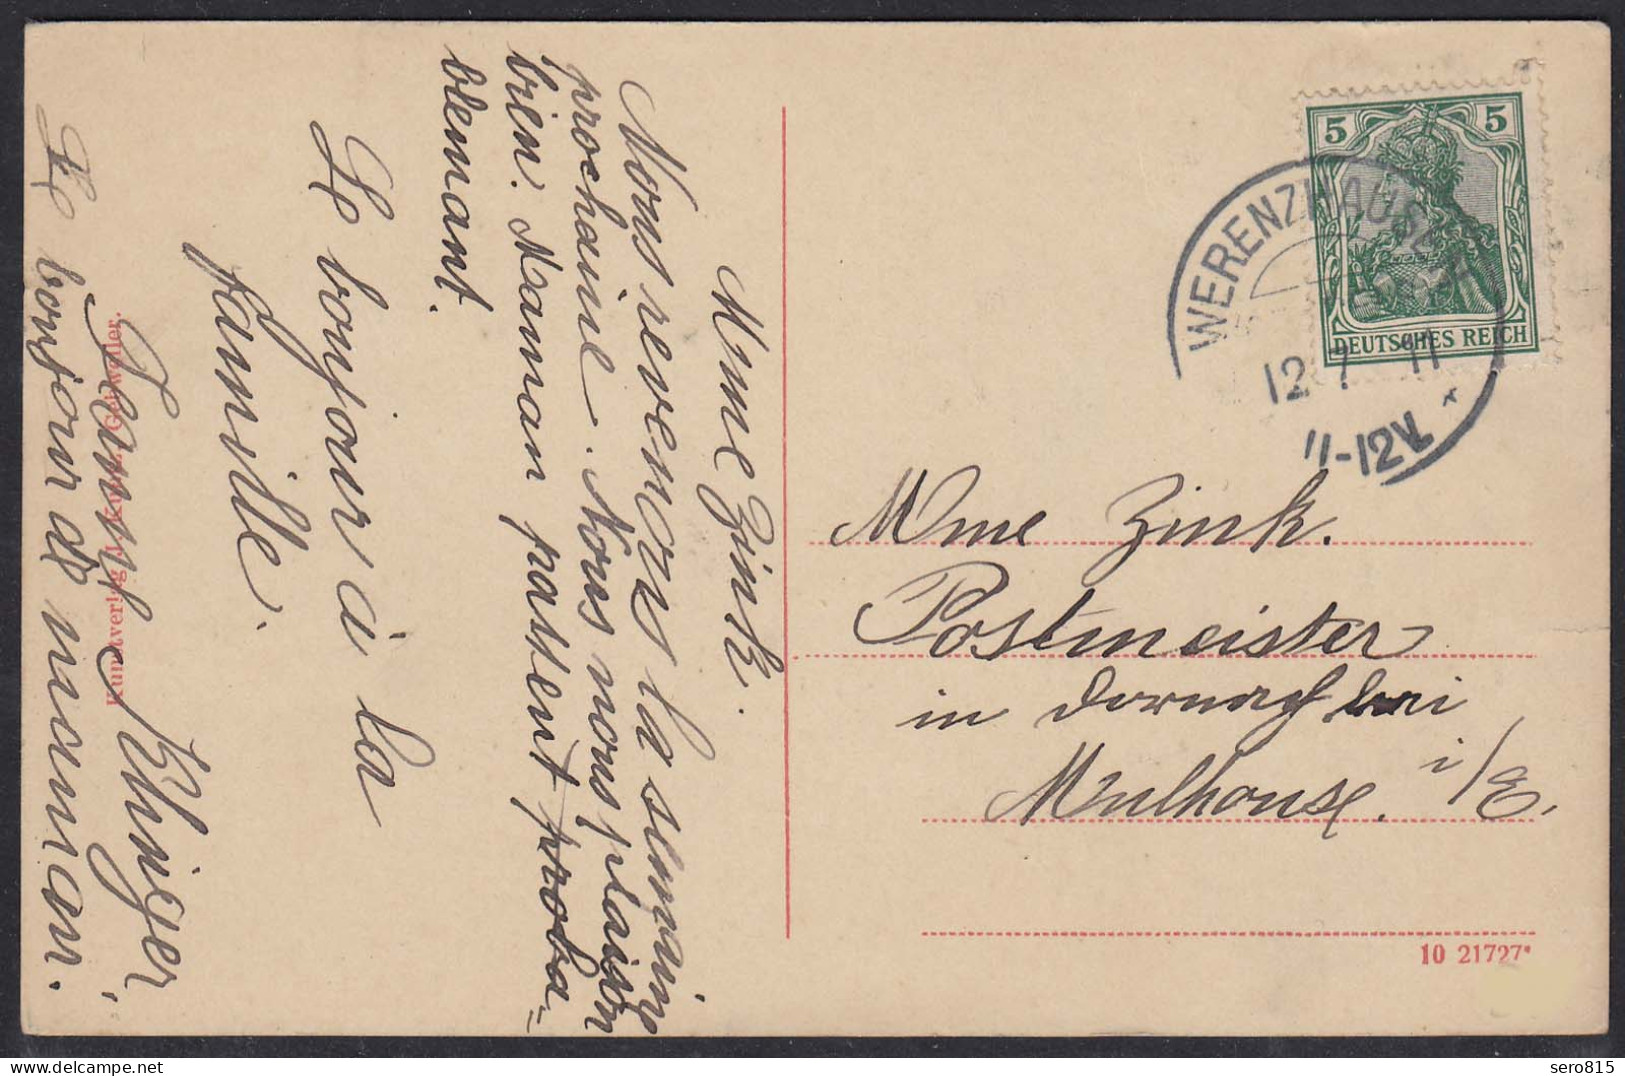 Mme Zink.
Nous revenons la semaine
prochaine. Nous nous plaison
bien. Maman partent proba=
blemant.
Le bonjour à la
famille.
Klinger
Le bonjour de maman.
Kunstverlag J. Kuntz, Gebweiler.
5 5
DEUTSCHES REICH
WERENZHAUSEN
12 7 11
11-12V.
Mme Zink.
Postmeister
in Dornach bei
Mulhouse. i/E.
10 21727*
sero815